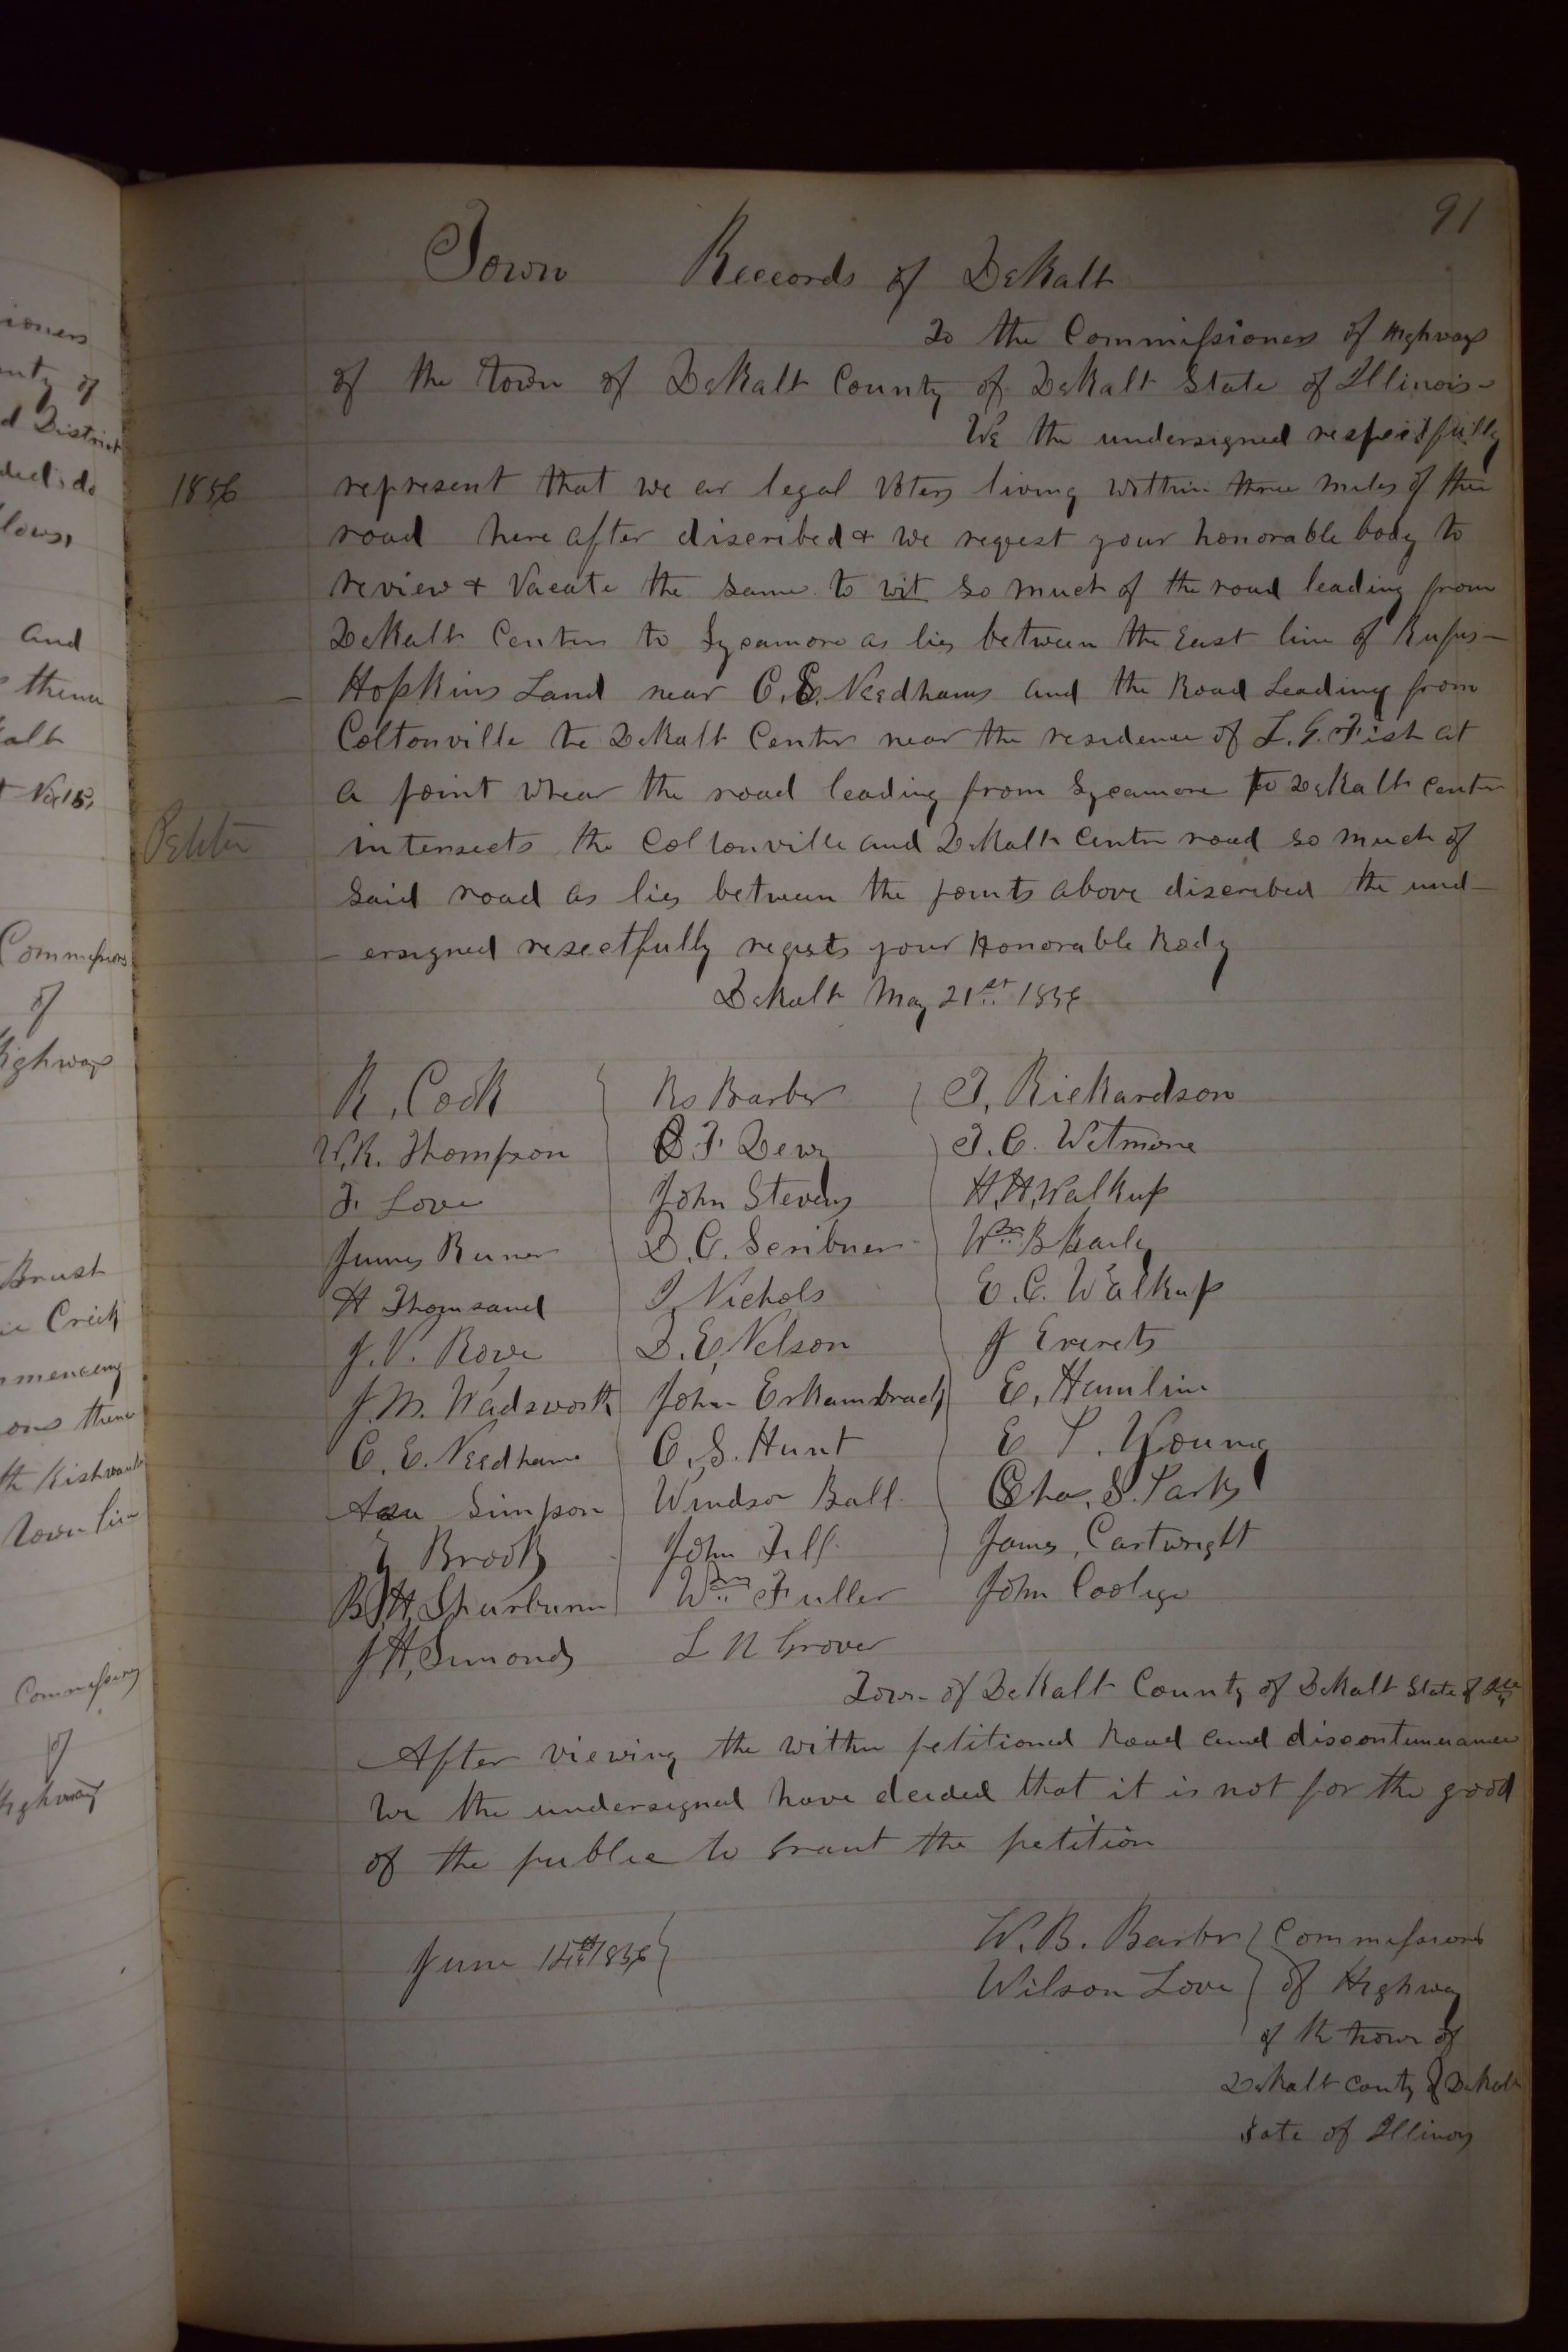 91
Town Reccords of DeKalb
To the Commissioners of Highways
of the town of DeKalb County of DeKalb State of Illinois-
We the undersigned respectfully
1856
represent that we ar legal Voters living within three miles of the
road here after discribed & we reqest your honorable body to
review & Vacate the same to wit so much of the road leading from
DeKalb Center to Sycamore as lies between the East line of Rufus-
- Hopkins Land near C. E. Needhams and the Road Leading from
Coltonville to DeKalb Center near the residence of L. G. Fish at
a point whear the road leading from Sycamore to DeKalb Center
intersects the Coltonville and DeKalb Center road so much of
said road as lies between the points above discribed the und-
- ersigned resectfully reqests your Honorable Body
DeKalb May 21st 1856
R. Cock Ro Barber J. Rickardson
W.R. Thompson John Stevens J. C. Wetmore
F. Love D. C. Scribner H. H. Walkup
James Runer J. Nichols Wm B Baily
H Thomsand D. E. Nelson E. C. Walkup
J. V. Rowe J Everets
J. M. Wadsworth John Erkambrach E. Hamlin
C. E. Needham C. S. Hunt E P. Young
Simpson Windsor Ball Chas. S. Parks
Brooks John Fell James Cartwright
B. H. Shurburne Wm Fuller John Coolige
J H, Simonds L N Grover
Town of DeKalb County of DeKalb State of Ills
After viewing the within petitioned Road and discontinuance
We the undersigned have deided that it is not for the good
of the public to Grant the petition
June 1856
W. B. Barber Commissioners
Wilson Love of Highway
of the town of
DeKalb conty of DeKalb
Sate of Illinois
ioners
unty of
d District
and
thence
kalb
t No 15,
Commissioners
of
Highways
Brush
Creek
mmencing
Town line
Commissioners
of
Highways